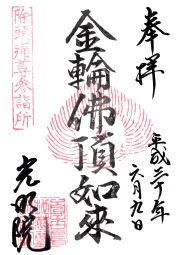 奉拝
平成三十年
六月九日
金輪佛頂如來
光明院